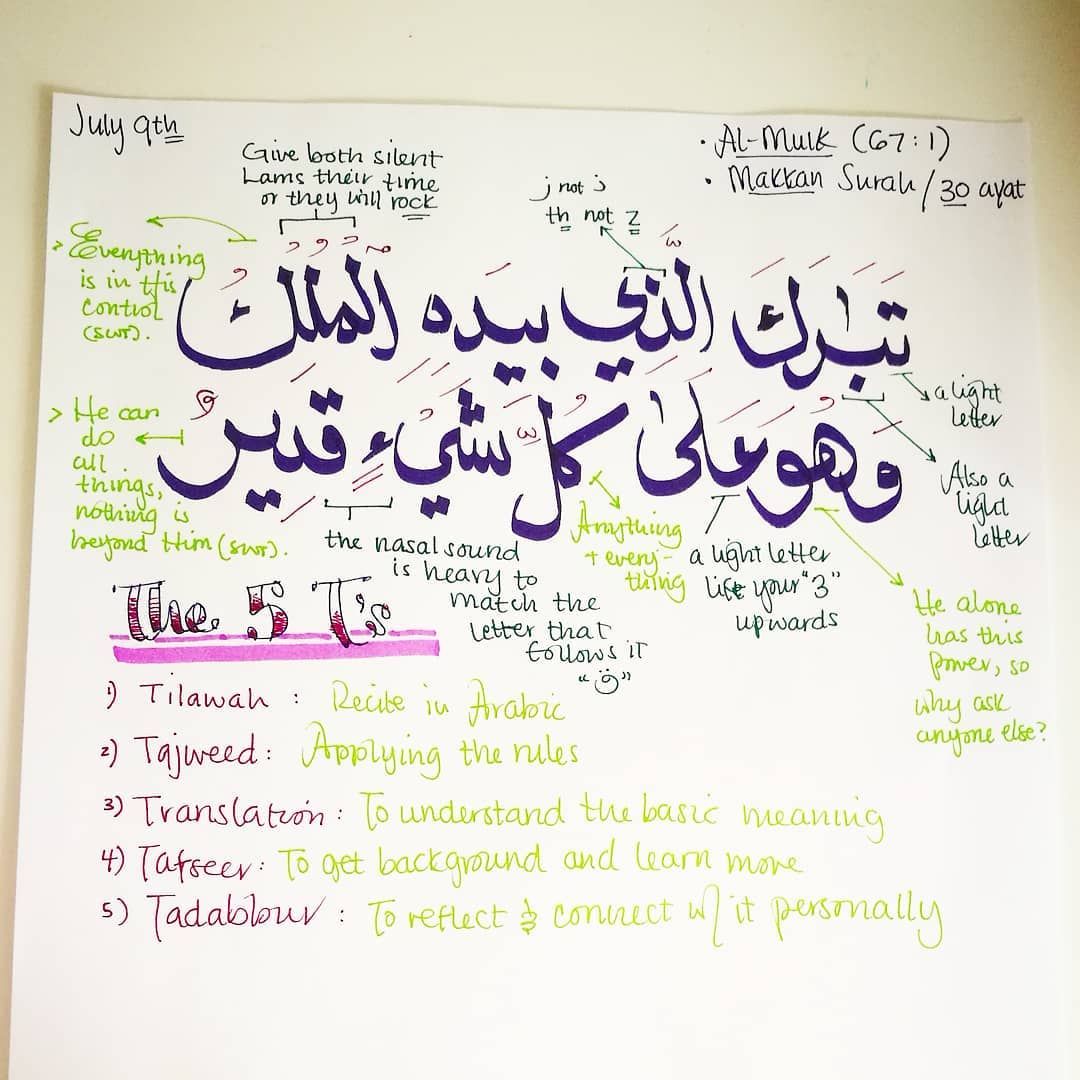 July 9th
• Al-Mulk (67:1)
• Makkan Surah / 30 ayat
Give both silent
Lams their time
or they will rock
ذ not ز
th not z
> Everything
is in His
control
(swt).
تَبَٰرَكَ الَّذِي بِيَدِهِ الْمُلْكُ
وَهُوَ عَلَىٰ كُلِّ شَيْءٍ قَدِيرٌ
a light
letter
Also a
light
letter
> He can
do
all
things,
nothing is
beyond Him (swt).
the nasal sound
is heavy to
match the
letter that
follows it
"ق"
Anything
+ every-
thing
a light letter
like your "3"
upwards
He alone
has this
power, so
why ask
anyone else?
The 5 T's
1) Tilawah : Recite in Arabic
2) Tajweed : Applying the rules
3) Translation : To understand the basic meaning
4) Tafseer : To get background and learn more
5) Tadabbur : To reflect & connect w/ it personally